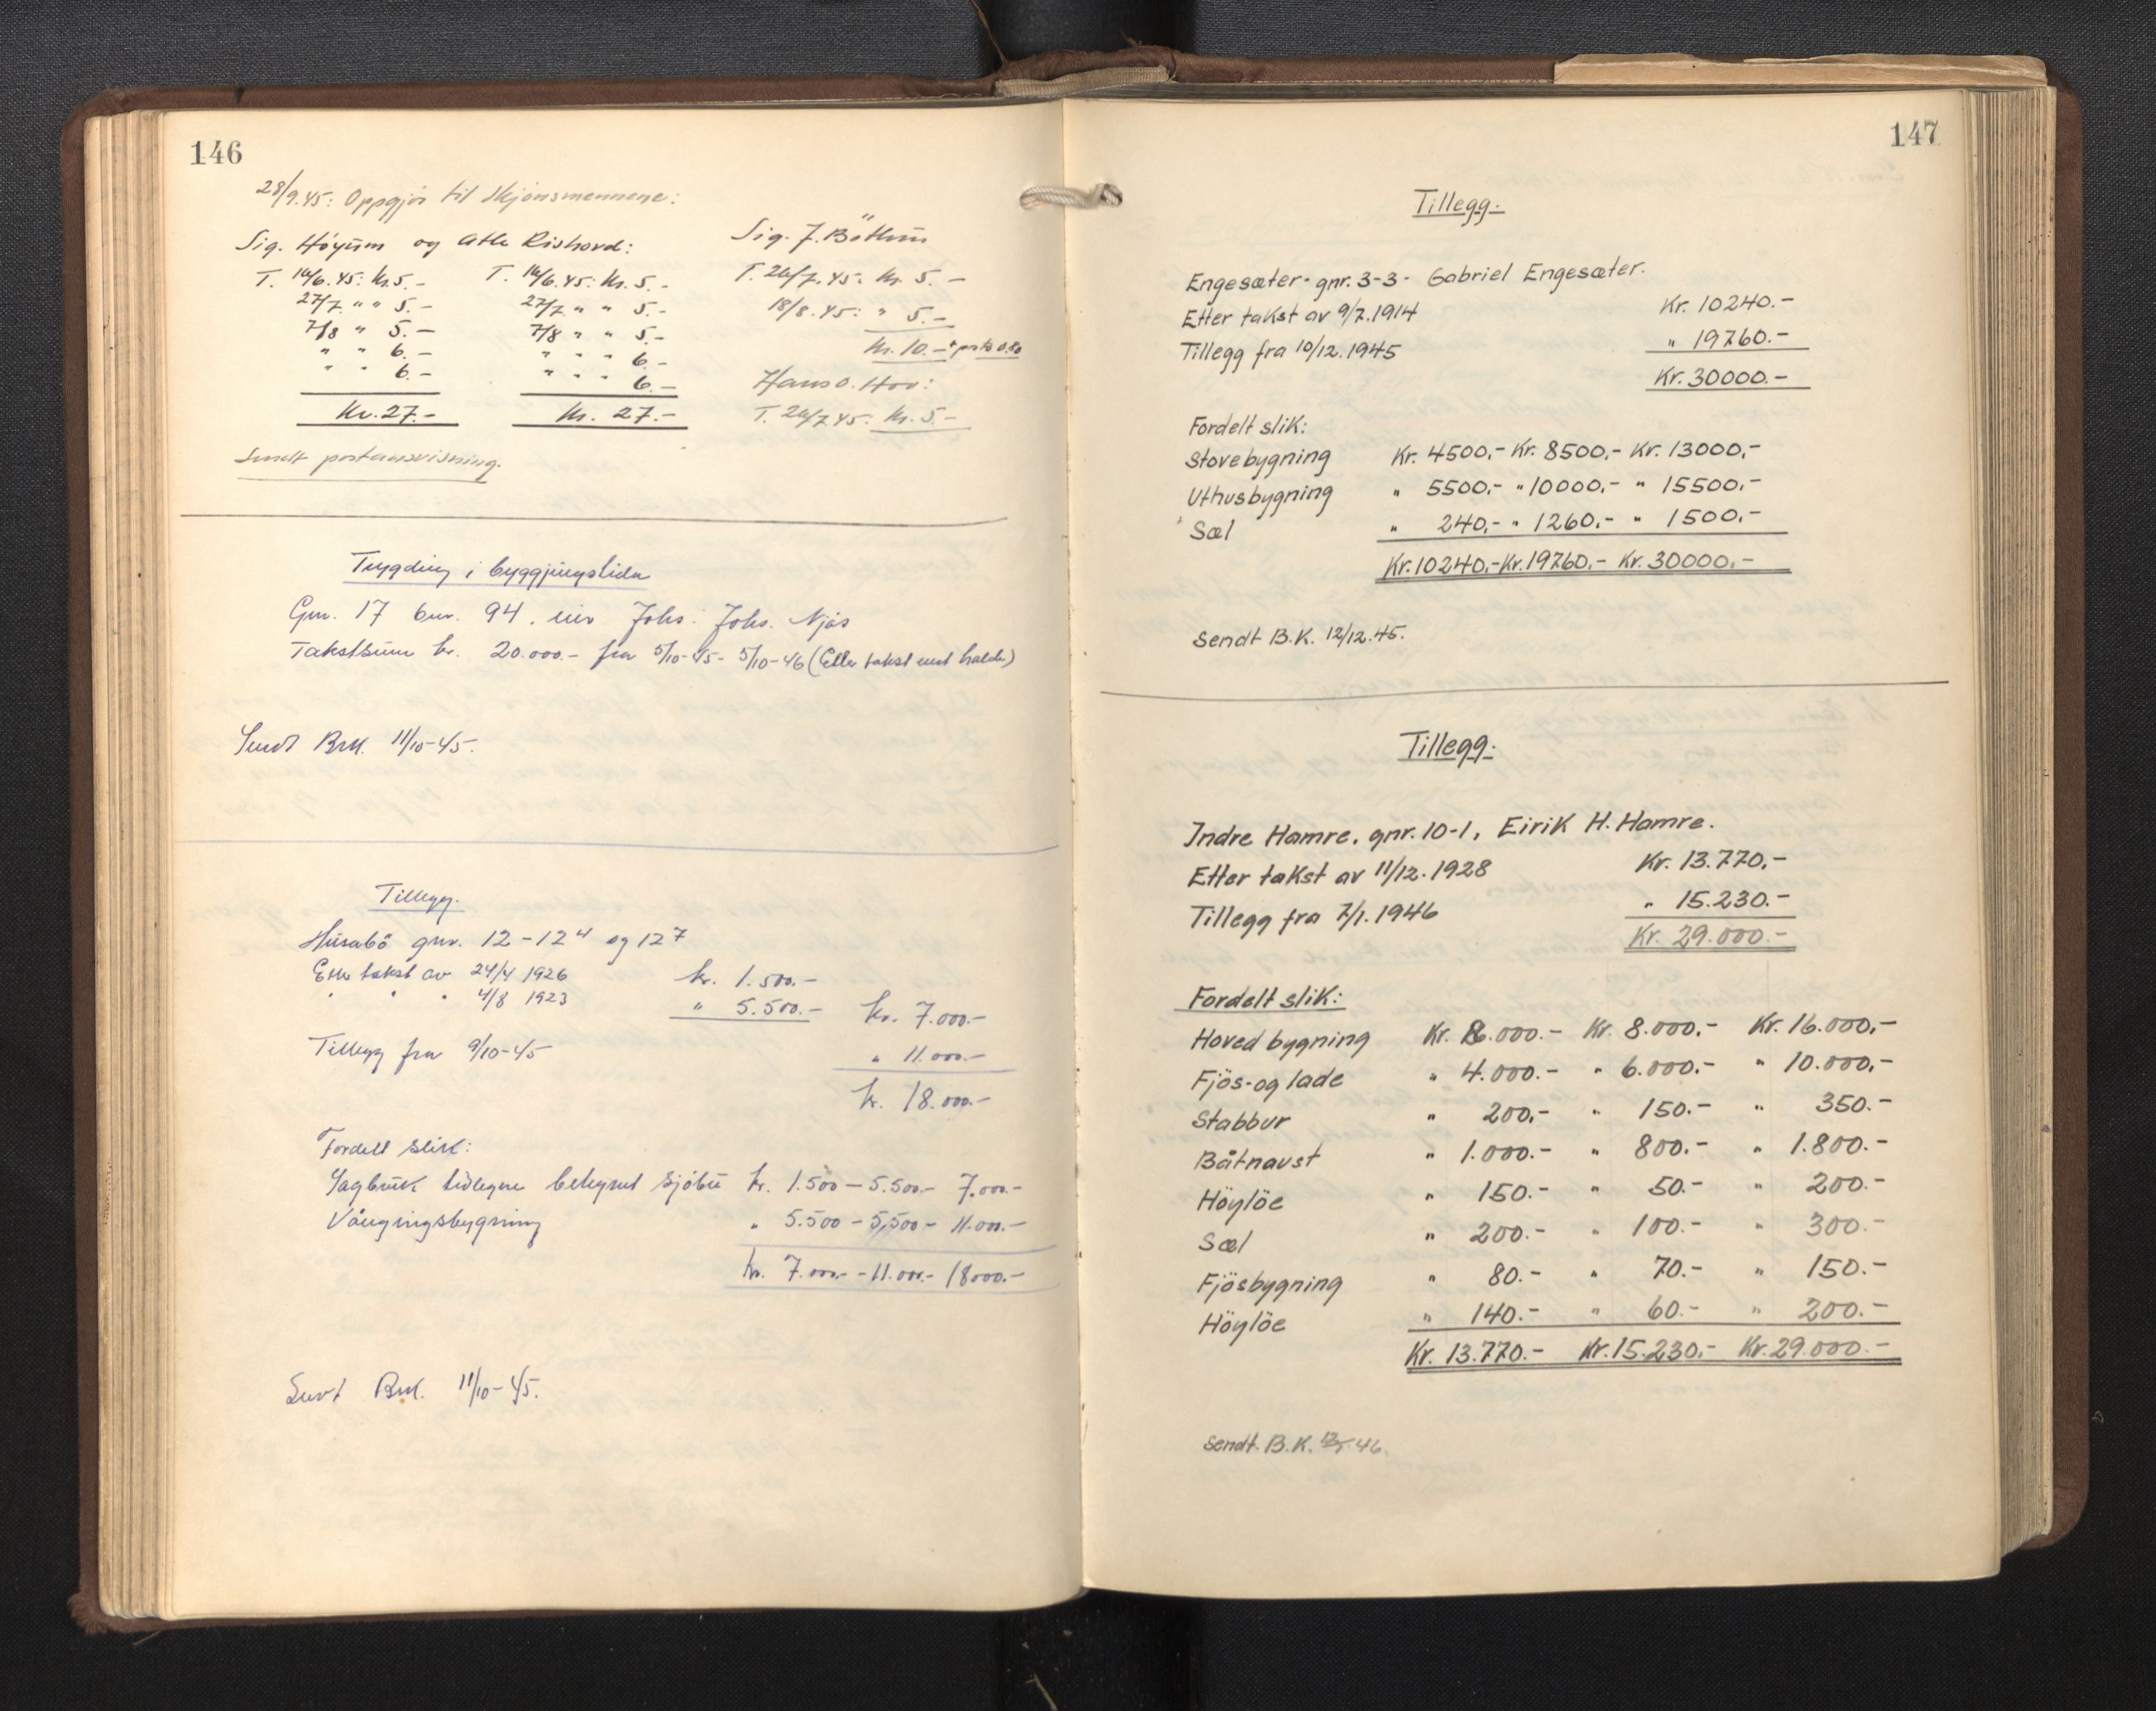 146
28/9.45: Oppgjör til skjönsmennene:
Sig. Höyum og Atle Rishovd:
T. 14/6.45: kr. 5.- T. 14/6.45: kr. 5.-
27/7 " " 5.- 27/7 " " 5.-
7/8 " 5.- 7/8 " " 5.-
" " 6.- " " " 6.-
" " 6.- " " " 6.-
Kr. 27.- Kr. 27.-
Sendt postanvisning.
Sig. J. Böthun
T. 24/7.45: kr. 5.-
18/8.45: " 5.-
Kr. 10.- + porto 0.80
Hans O. Hov:
T. 24/7 45: kr. 5.-
Trygding i byggjingstida
Gnr. 17 bnr. 94. eier Johs. Johs. Njøs
Takstsum kr. 20.000.- fra 5/10-45- 5/10-46 (Etter takst ved
Sendt Brk. 11/10-45.
Tillegg.
Husabö gnr. 12-12⁴ og 12⁷
Etter takst av 24/4 1926 kr. 1.500.-
" " " 4/8 1923 " 5.500.- kr. 7.000.-
Tillegg fra 9/10-45 " 11.000.-
kr. 18.000.-
Fordelt slik:
Sagbruk tidlegere betegnet sjöbu kr. 1.500 - 5.500- 7.000.-
Våningsbygning " 5.500 - 5,500- 11.000.-
kr. 7.000.- - 11.000.- 18000.-
Sendt Brk. 11/10-45.
147
Tillegg.
Engesæter- gnr. 3-3- Gabriel Engesæter.
Etter takst av 9/7.1914 Kr. 10240.-
Tillegg fra 10/12.1945 " 19760.-
Kr. 30000.-
Fordelt slik:
Stovebygning Kr. 4500,- Kr. 8500,- Kr. 13000,-
Uthusbygning " 5500,- " 10000,- " 15500,-
Sæl " 240,- " 1260,- " 1500,-
Kr. 10240,- Kr. 19760,- Kr. 30000,-
Sendt B.K. 12/12.45.
Tillegg.
Indre Hamre, gnr. 10-1, Eirik H. Hamre.
Etter takst av 11/12.1928 Kr. 13.770,-
Tillegg fra 7/1.1946 " 15.230.-
Kr. 29.000.-
Fordelt slik:
Hovedbygning Kr. 8.000.- Kr. 8.000,- Kr. 16.000,-
Fjös-og lade " 4.000.- " 6.000.- " 10.000,-
Stabbur " 200,- " 150.- " 350.-
Båtnaust " 1.000.- " 800.- " 1.800.-
Höylöe " 150.- " 50.- " 200.-
Sæl " 200.- " 100.- " 300.-
Fjösbygning " 80.- " 70.- " 150.-
Höylöe " 140.- " 60.- " 200.-
Kr. 13.770.- Kr. 15.230,- Kr. 29.000.-
Sendt. B.K. 46.